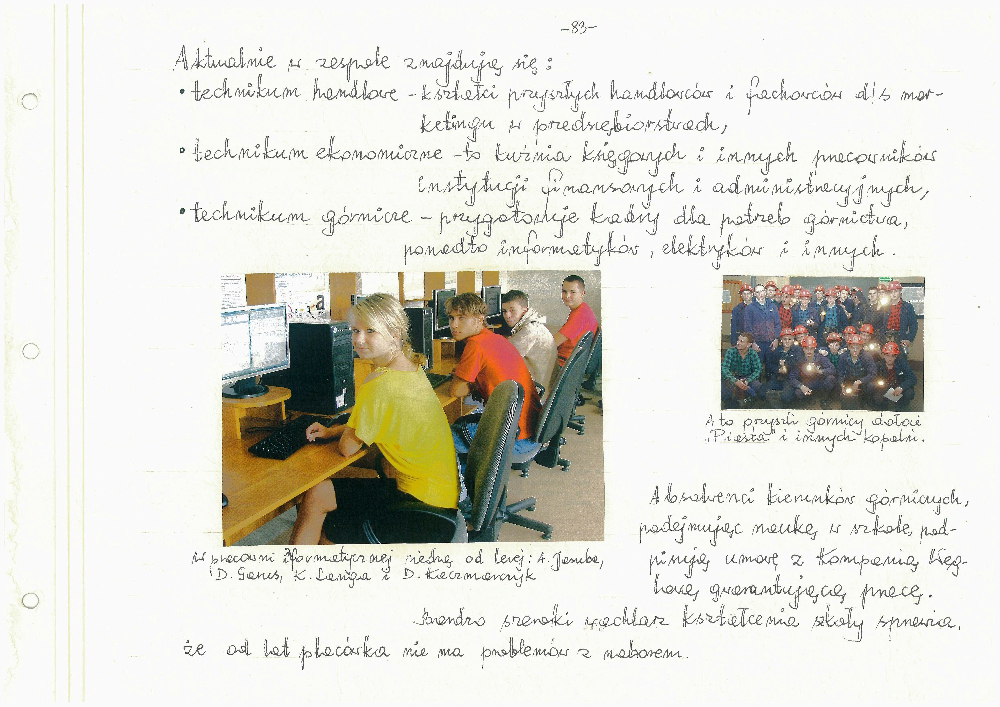 -83-
Aktualnie w zespole znajdują się:
• technikum handlowe - kształci przyszłych handlowców i fachowców d/s mar-
ketingu w przedsiębiorstwach,
• technikum ekonomiczne - to kuźnia księgowych i innych pracowników
instytucji finansowych i administracyjnych,
• technikum górnicze - przygotowuje kadry dla potrzeb górnictwa,
ponadto informatyków, elektryków i innych.
A to przyszli górnicy
"Piasta" i innych kopalni.
Absolwenci kierunków górniczych,
podejmując naukę w szkole pod-
pisują umowę z Kompanią Węg-
lową gwarantującą pracę.
W pracowni informatycznej siedzą od lewej: A. Jemba,
D. K. i D. Kaczmarczyk
Bardzo szeroki wachlarz kształcenia szkoły sprawia,
że od lat placówka nie ma problemów z naborem.